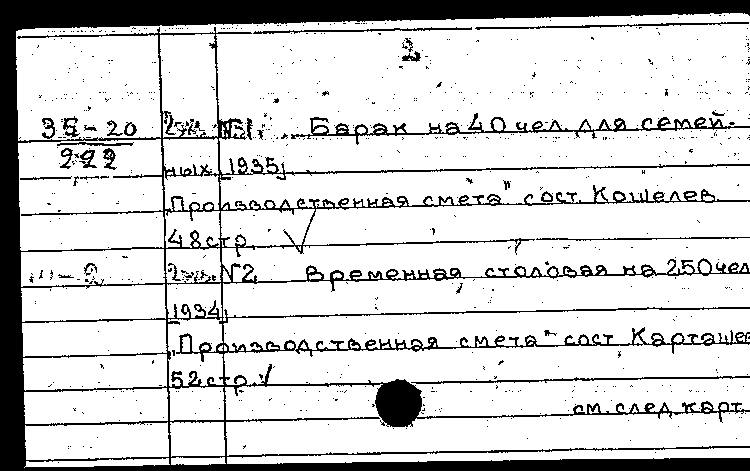 2
35-20 2экз. №1. Барак на 40 чел. для семей-
222
ных [1935]
„Производственная смета" сост. Кошелев
48 стр. √
"-2 2экз. №2 Временная столовая на 250 чел
[1934]
„Производственная смета" сост Карташев
52 стр. √
см. след. карт.